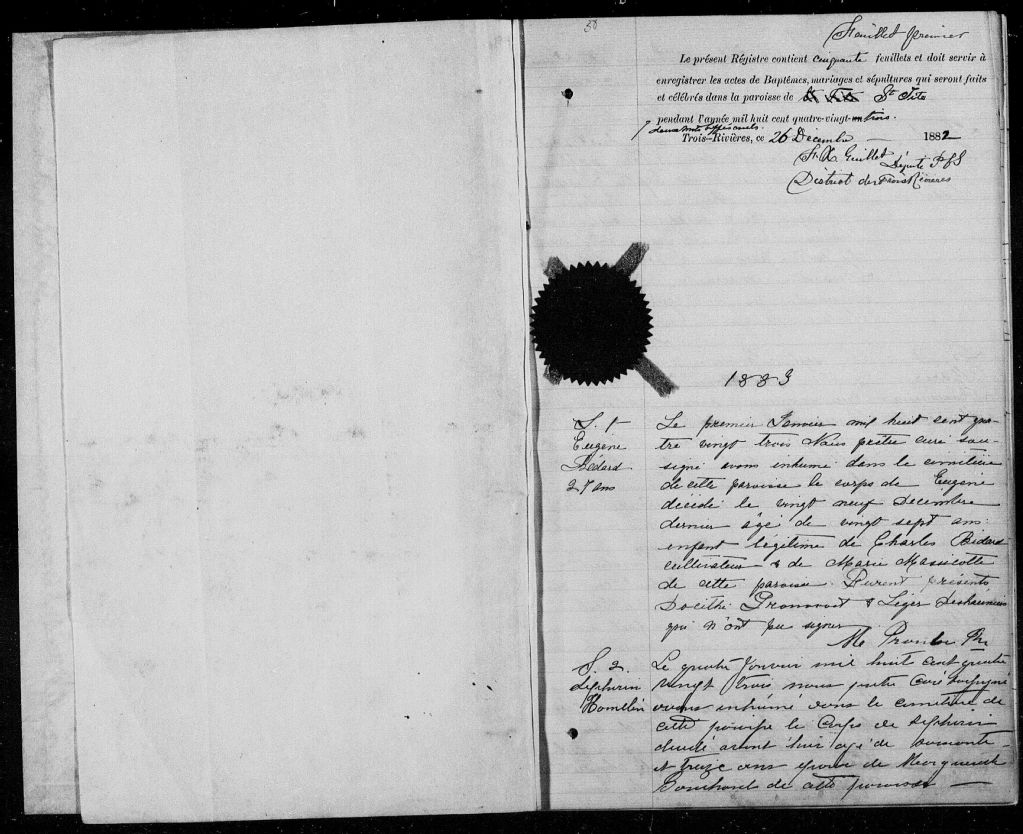 50
Feuillet premier
Le présent Régistre contient cinquante feuillets et doit servir à
enregistrer les actes de Baptêmes, mariages et sépultures qui seront faits
et célébrés dans la paroisse de St Tite
pendant l'année mil huit cent quatre-vingt-trois.
deux mots
Trois-Rivières, ce 26 Décembre 1882
F. X. Guillet
Député P S
District des Trois Rivières
1883
S. 1
Eugène
Bédard
27 ans
Le premier Janvier mil huit cent qua-
tre vingt trois Nous prêtre curé sou-
signé avons inhumé dans le cimitière
de cette paroisse le corps de Eugène
décédé le vingt neuf Decembre
dernier âgé de vingt sept ans.
enfant légitime de Charles Bédard
cultivateur & de Marie Massicotte
de cette paroisse. Furent présents
Docithé Pronovost & Léger Deshaumiers
qui n'ont pu signer
S. 2
Zéphirin
Hamelin
Le quatre Janvier mil huit cent quatre
vingt trois, nous prêtre curé soussigné
avons inhumé dans le cimetière de
cette paroisse le Corps de Zéphirin
décédé avant hier âgé de soixante
et treize ans époux de Marguerite
de cette paroisse